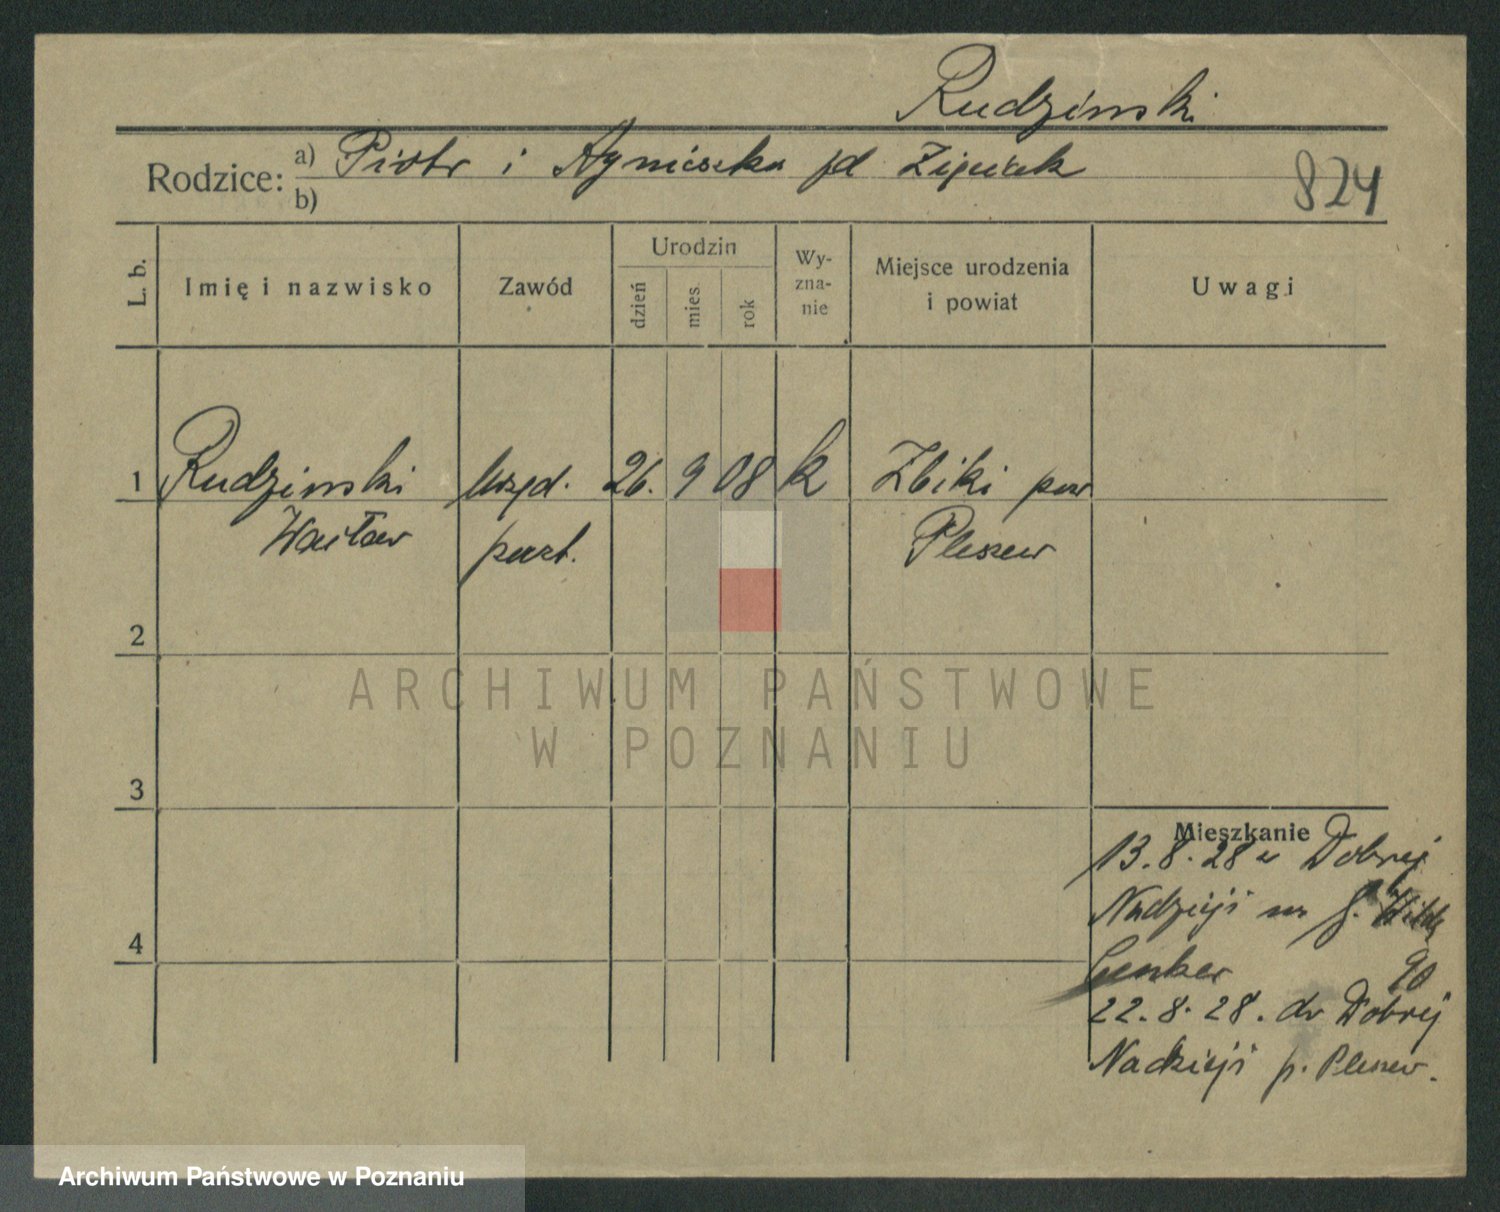 Rudzinski
Rodzice: a) Piotr i Agnieszka
b)
824
L. b.
Imię i nazwisko
Zawód
Urodzin
dzień
mies.
rok
Wy-
zna-
nie
Miejsce urodzenia
i powiat
Uwagi
1 Rudzinski Urzęd. 26. 9 08 k Zbiki pow
Wacław poczt. Pleszew
2
ARCHIWUM PAŃSTWOWE
W POZNANIU
3
Mieszkanie
13.8.28 z Dobrej
Nadzieji na G. Wildę
90
4
22.8.28. do Dobrej
Nadzieji p. Pleszew.
Archiwum Państwowe w Poznaniu